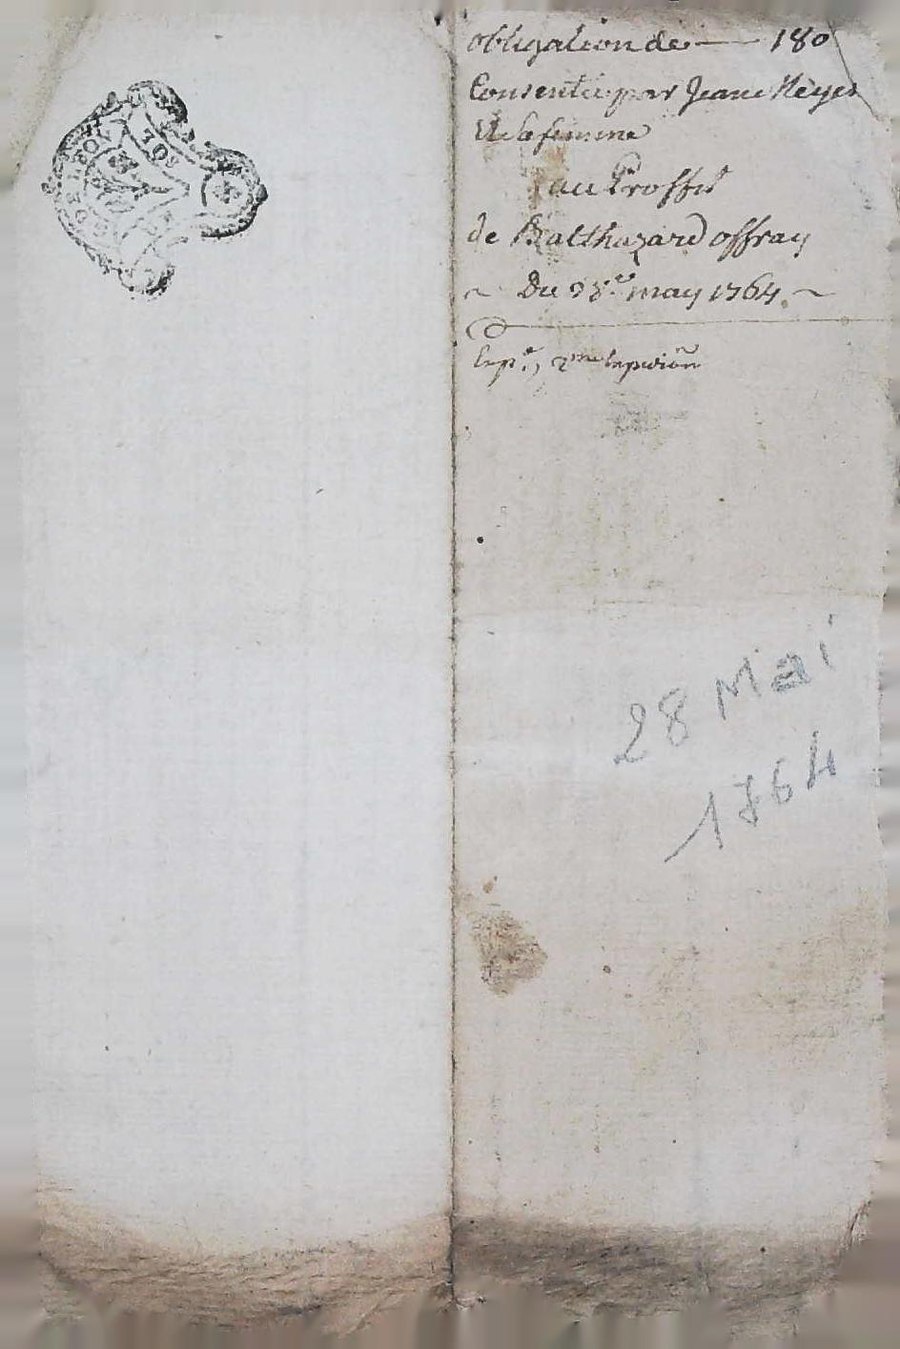 obligation de — 180
Consentie par Jean Neyer
Et sa femme
au Proffit
de Balthazard offray
~ Du 28e may 1764. ~
Exp.e, 2me
28 Mai
1764
SOL